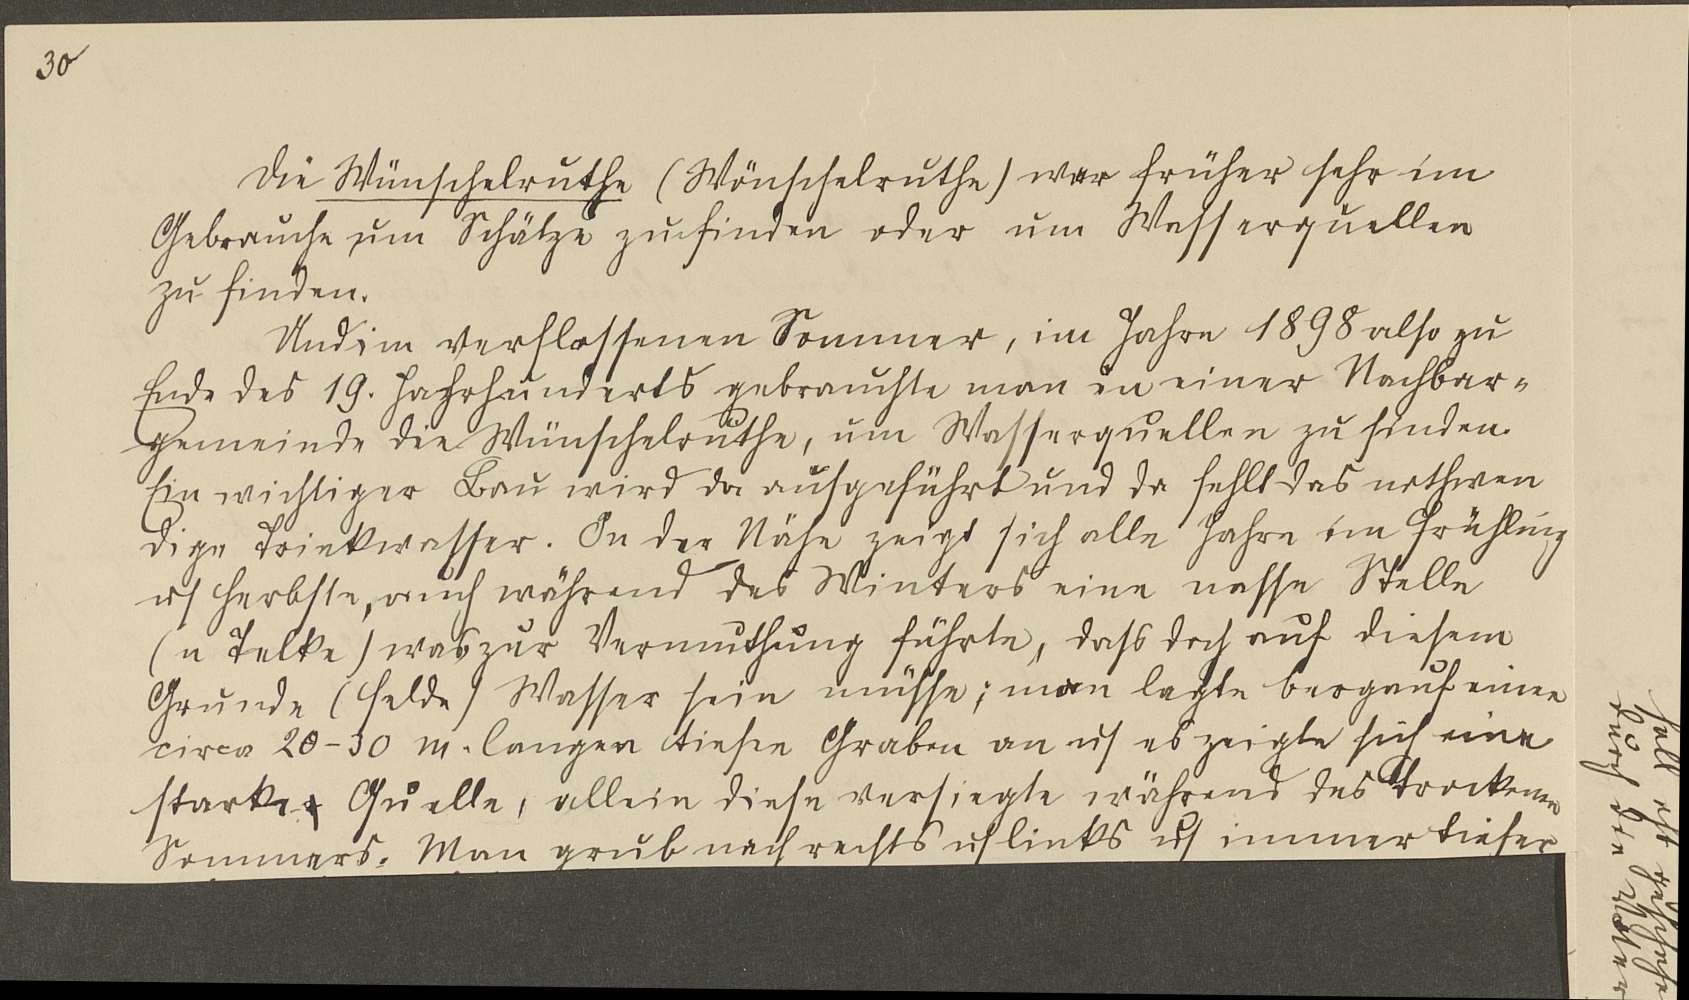 30
Die Wünschelruthe (Wönschelruthe) war früher sehr im
Gebrauche um Schätze zu finden oder um Wasserquellen
zu finden.
Und im verflossenen Sommer, im Jahre 1898 also zu
Ende des 19. Jahrhunderts gebrauchte man in einer Nachbar-
gemeinde die Wünschelruthe, um Wasserquellen zu finden.
Ein wichtiger Bau wird da aufgeführt und da fehlt das nothwen
dige Trinkwasser. In der Nähe zeigt sich alle Jahre im Frühling
u Herbste, auch während des Winters eine nasse Stelle
(n Telke) was zur Vermuthung führte, dass doch auf diesem
Grunde (Felde) Wasser sein müsse; man legte bergauf einen
circa 20-30 m. langen tiefen Graben an u es zeigte sich eine
starke Quelle, allein diese versiegte während des trockenen
Sommers. Man grub nach rechts u links u immer tiefer
durch den